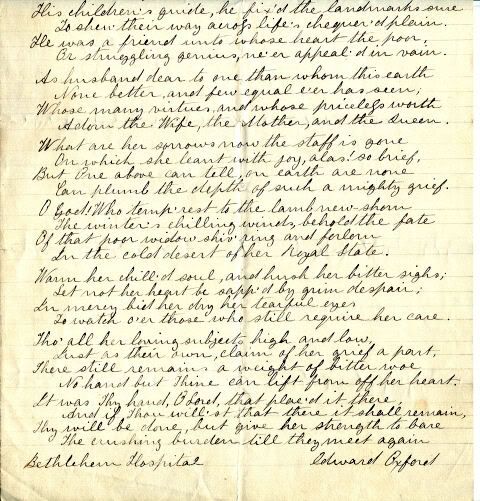 His children's guide, he fix'd the landmarks sure
To shew their way across life's chequer'd plain.
He was a friend unto whose heart the poor,
Or struggling genius, ne'er appeal'd in vain.
As husband dear to one than whom this earth
None better, and few equal e'er has seen;
Whose many virtues, and whose priceless worth
Adorn the Wife, the Mother, and the Queen.
What are her sorrows now the staff is gone
On which she leant with joy, alas! so brief,
But One above can tell, on earth are none
Can plumb the depth of such a mighty grief.
O God! Who temp'rest to the lamb new-shorn
The winter's chilling winds, behold the fate
Of that poor widow shiv'ring and forlorn
In the cold desert of her Royal State.
Warm her chill'd soul, and hush her bitter sighs;
Let not her heart be sapp'd by grim despair;
In mercy bid her dry her tearful eyes
To watch o'er those who still require her care.
Tho' all her loving subjects high and low,
Just as their own, claim of her grief a part,
There still remains a weight of bitter woe
No hand but Thine can lift from off her heart.
It was Thy hand, O Lord, that plac'd it there,
And if Thou will'st that there it shall remain,
Thy will be done, but give her strength to bare
The crushing burden till they meet again
Bethlehem Hospital Edward Oxford